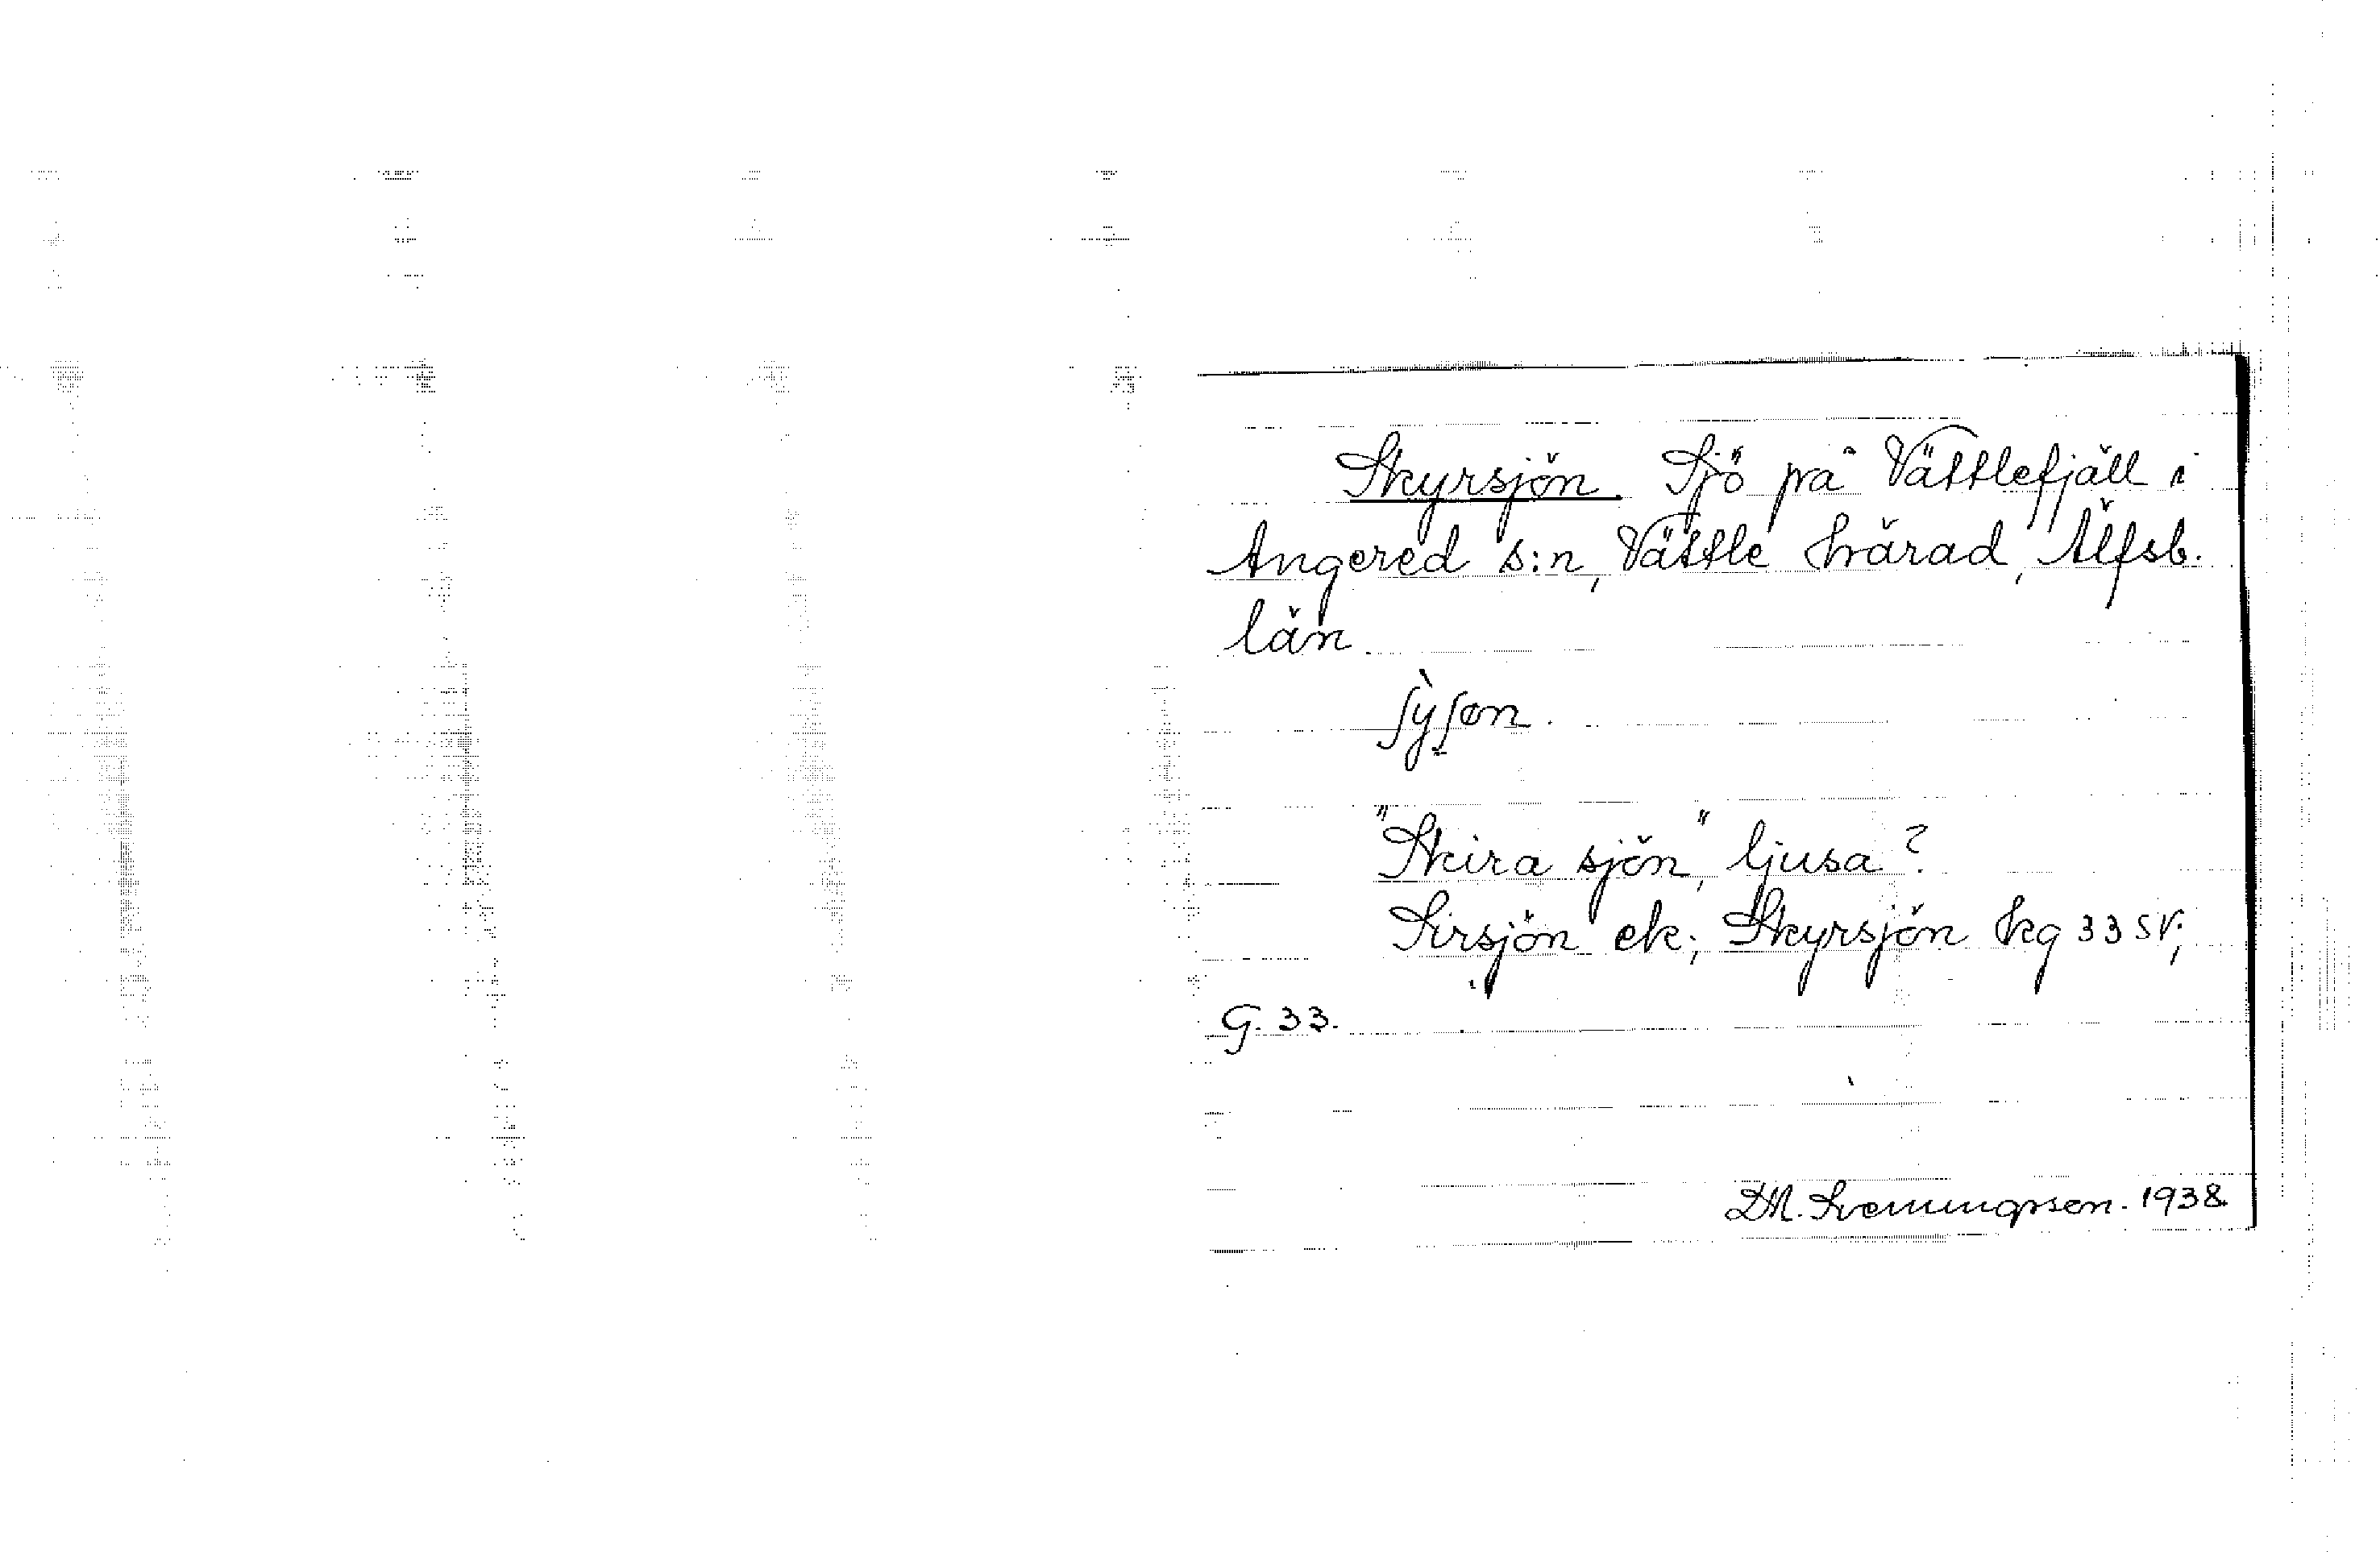 Skyrsjön. Sjö på Vättlefjäll i
Angered s:n, Vättle härad, Älfsb.
län
ʃỳʃøn.
"Skira sjön", ljusa?
Sirsjön ek; Skyrsjön hkg 33 SV;
G. 33.
D.M. Svenningsson. 1938.